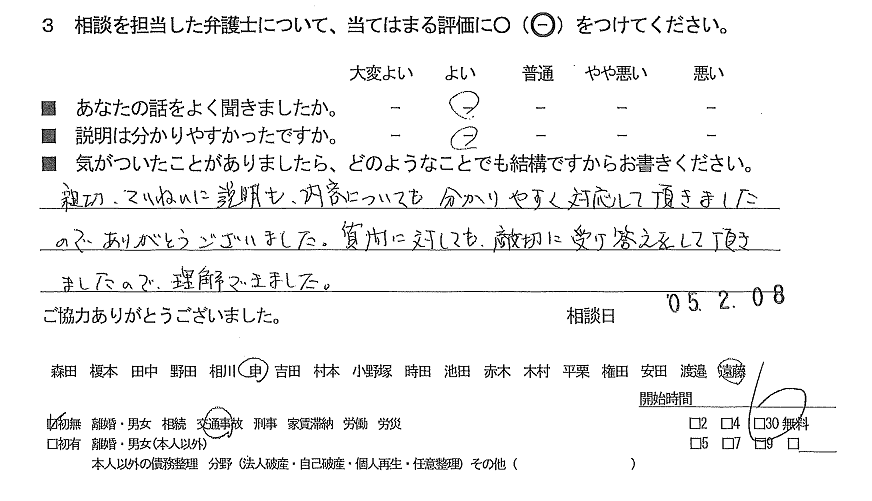 3 相談を担当した弁護士について、当てはまる評価に〇（㊀）をつけてください。
大変よい よい 普通 やや悪い 悪い
■ あなたの話をよく聞きましたか。 － － － － －
■ 説明は分かりやすかったですか。 － － － － －
■ 気がついたことがありましたら、どのようなことでも結構ですからお書きください。
親切、ていねいに説明も、内容についても 分かりやすく対応して頂きました
ので ありがとうございました。質問に対しても、適切に受け答えをして頂き
ましたので、理解できました。
ご協力ありがとうございました。 相談日 '05. 2. 08
森田 榎本 田中 野田 相川 申 吉田 村本 小野塚 時田 池田 赤木 木村 平栗 権田 安田 渡邉 遠藤
開始時間
☑初無 離婚・男女 相続 交通事故 刑事 家賃滞納 労働 労災 □2 □4 □30 無料
□初有 離婚・男女(本人以外) □5 □7 □9 □
本人以外の債務整理 分野（法人破産・自己破産・個人再生・任意整理）その他（ ）